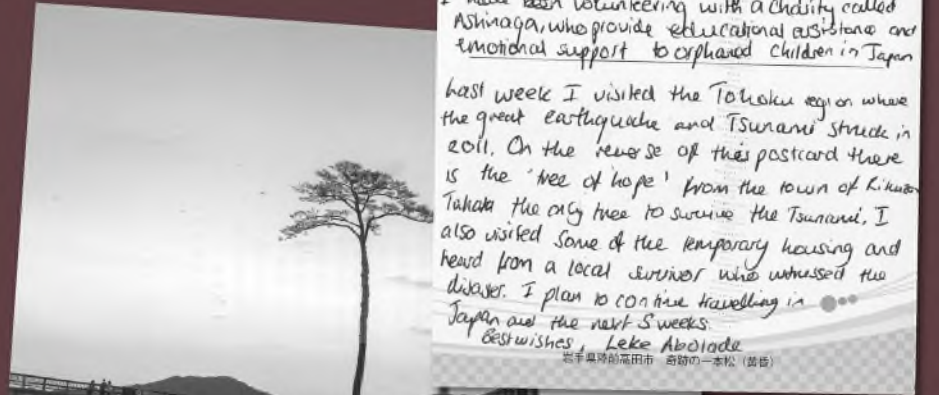 I have been volunteering with a charity called
Ashinaga, who provide educational assistance and
emotional support to orphaned children in Japan
Last week I visited the Tohoku region where
the great earthquake and Tsunami struck in
2011. On the reverse of this postcard there
is the 'tree of hope' from the town of Rikuzen
Takata the only tree to survive the Tsunami. I
also visited some of the temporary housing and
heard from a local survivor who witnessed the
disaster. I plan to continue travelling in
Japan over the next 5 weeks.
Best wishes, Leke Abolade
岩手県陸前高田市 奇跡の一本松（黄昏）